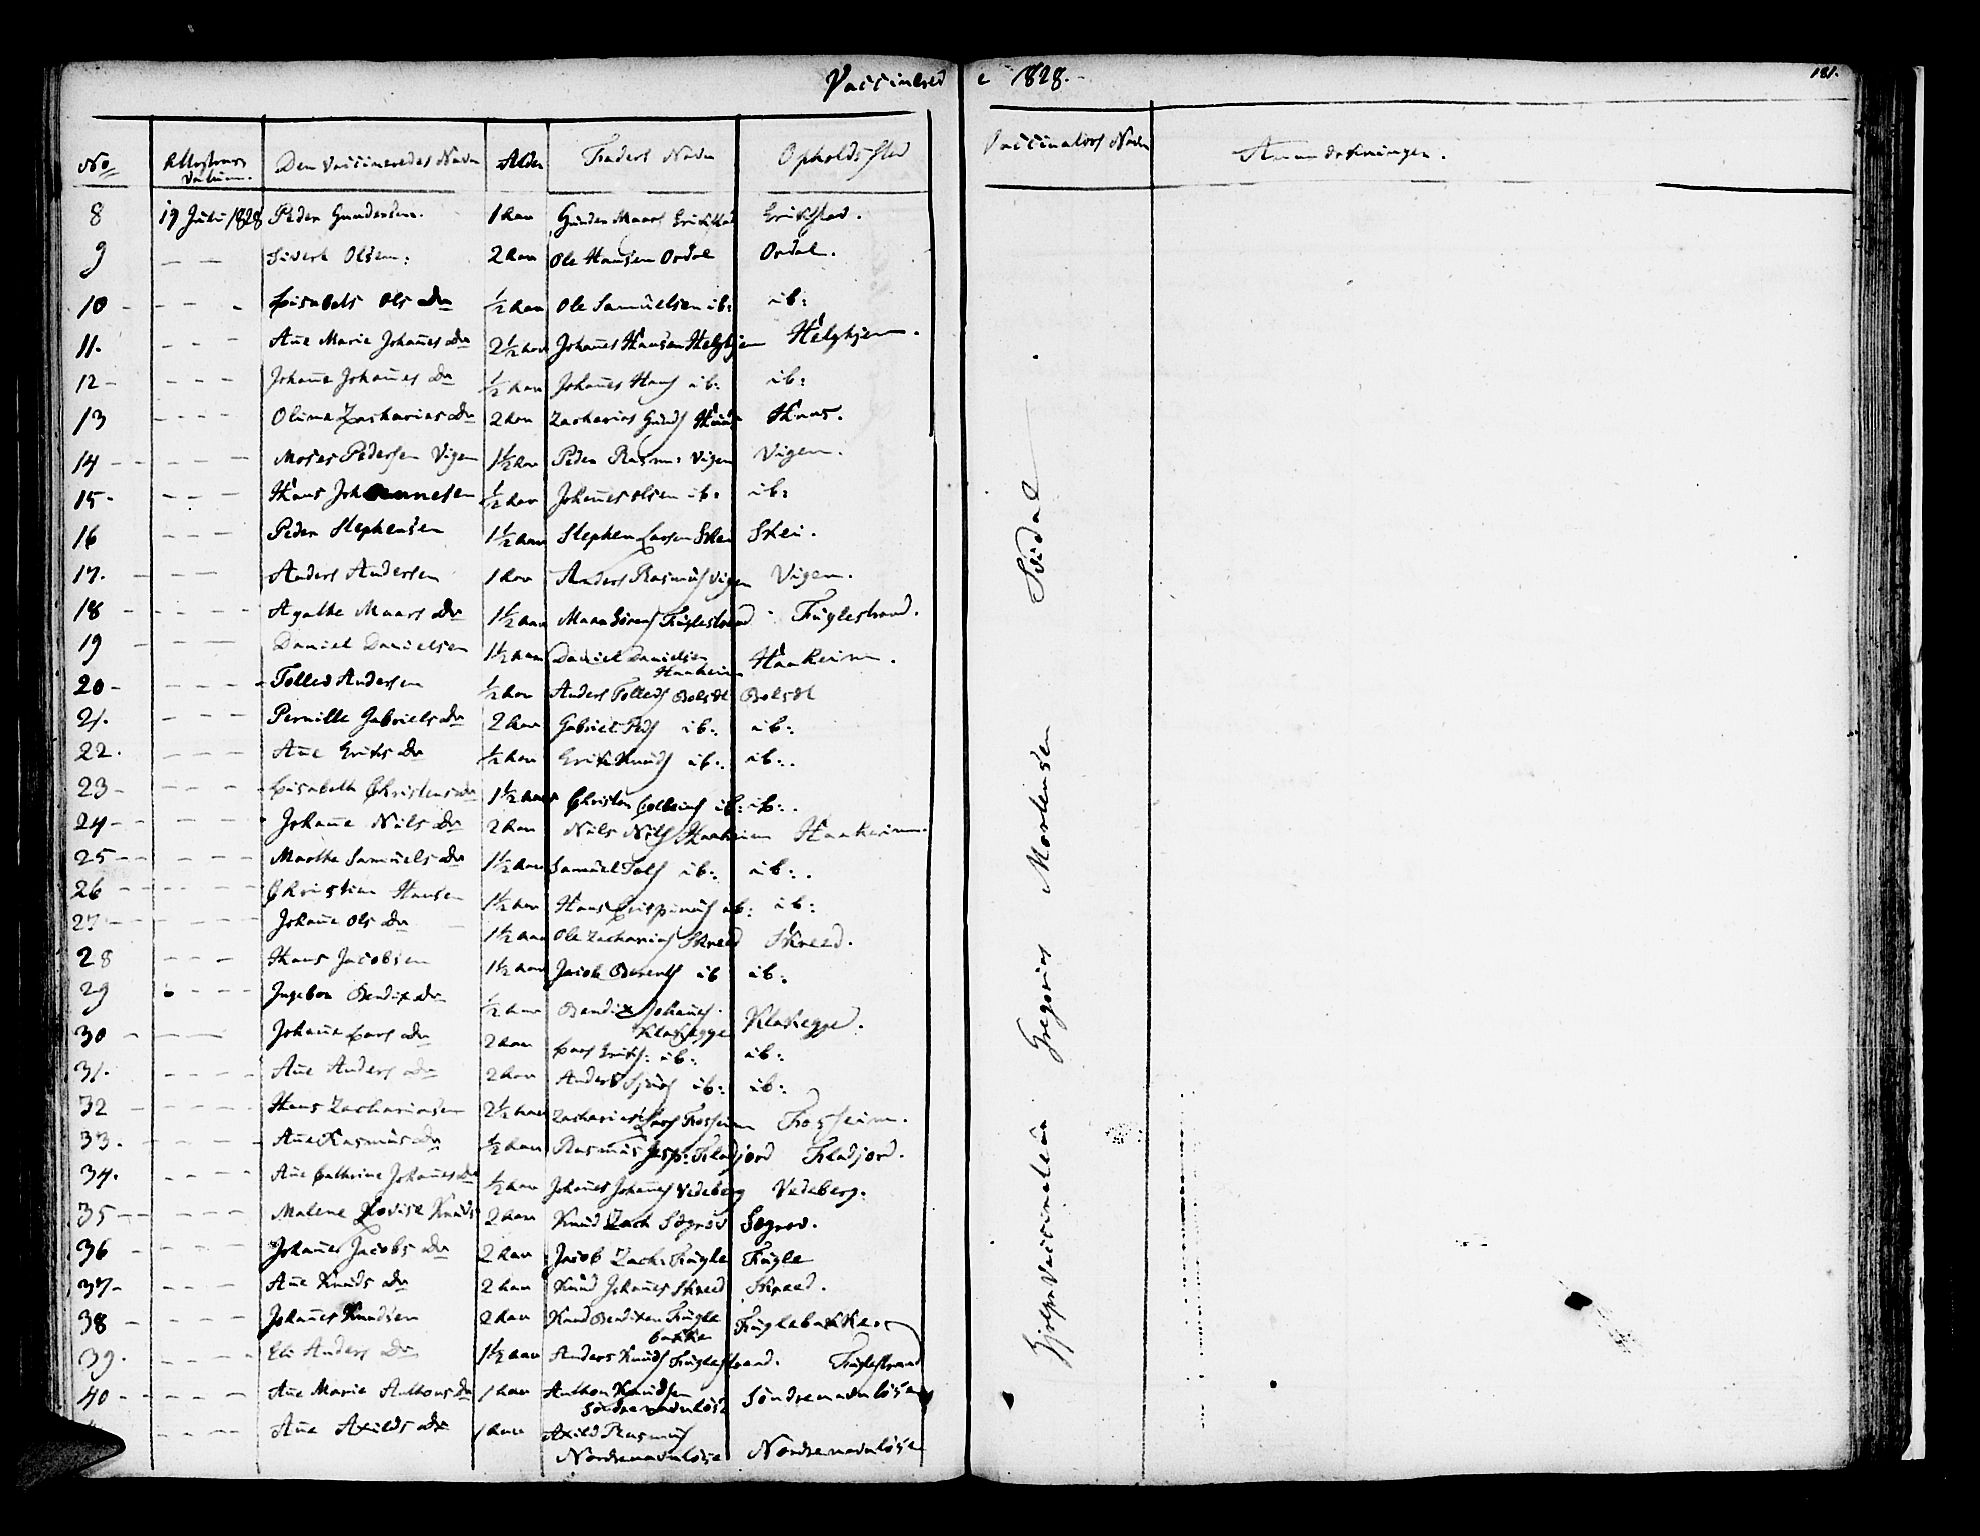 Vaccinered e 1828.
181.
No Attestens Datum. Den Vaccineredes Navn Alder Faders Navn Opholdssted Vaccinators Navn Anmærkningen.
8 17 Juli 1828 Peder Gundersen. 1 Aar Gunder Maars Erikstad Erikstad.
9 - - Sivert Olsen. 2 Aar Ole Hansen Ordal Ordal.
10 - - - Lisabets Ols Dr ½ Aar Ole Samuelsen ib: ib:
11. - - - Añe Marie Johañes Dr 2½ Aar Johañes Hansen Helghjem Helghjem.
12 - - - - Johañe Johañes Dr ½ Aar Johañes Hans ib: ib:
13 - - - Olina Zacharias Dr 2 Aar Zacharias Haus.
14 - - - Moses Pedersen Vigen 1½ Aar Peder Rasm: Vigen Vigen.
15. - - - Hans Johannesen ½ Aar Johañes Olsen ib: ib:
16 - - - Peder Stephensen 1½ Aar Stephen Larsen Skei Skei.
17. - - - Anders Andersen 1 Aar Anders Rasmus Vigen Vigen.
18 - - - Agathe Maars Dr 1½ Aar Maar Sørens Fuglestrand Fuglestrand.
19 - - - Daniel Danielsen 1½ Aar Daniel Danielsen Haaheim Haaheim.
20 - - - - Tollev Andersen ½ Aar Anders Tollefs Bolsæt Bolsæt
21. - - - Pernille Gabriels Dr 2 Aar Gabriel Peds ib: ib:
22. - - - Añe Eriks Dr ½ Aar Erik Knuds ib: ib:.
23 - - - - Lisabeth Christens Dr 1½ Aar Christen ib: ib:.
24 - - - - Johañe Nils Dr 2 Aar Nils Nils Haaheim Haaheim.
25 - - - - Marthe Samuels Dr 1½ Aar Samuel ib: ib:.
26 - - - - Christian Hansen 1½ Aar Hans Crispinus ib: ib:
27 - - - - Johañe Ols Dr 1½ Aar Ole Zacharias Skreed Skreed.
28 - - - Hans Jacobsen 1½ Aar Jacob Berents ib ib:
29 - - - Ingebor Bendix Dr ½ Aar Bendix Johañes. Klakegge Klakegge.
30 - - - Johaña Lars Dr 2 Aar Lars Eriks: ib: ib:
31. - - - Añe Anders Dr 2 Aar Anders ib: ib:
32 - - - Hans Zachariasen 2½ Aar Zacharias Lars Fosheim Fosheim.
33. - - - Añe Rasmus Dr ½ Aar Rasmus Jesp: Fladjord Fladjord.
34. - - - Añe Cathrine Johañes Dr ½ Aar Johañes Johañes Vedeberg Vedeberg.
35 - - - Malene Lovise Knuds 2 Aar Knud Zach Søgrov Søgrov.
36 - - - Johañe Jacobs Dr 2 Aar Jacob Zach: Fugle Fugle
37 - - - Añe Knuds Dr 2 Aar Knud Johañes Skreed Skreed.
38 - - - Johañes Knudsen 2 Aar Knud Bendixen Fugle bakke Fuglebakke.
39. - - - Eli Anders Dr 1½ Aar Anders Knuds Fuglestrand. Fuglestrand
40 - - - - Añe Marie Anthons Dr 1 Aar Anthon Knudsen Søndrenavnløse Søndrenavnløse
- - - Añe Axilds Dr 1 Aar Axild Rasmus Nordrenavnløse Nordrenavnløse
Hjelpevaccinateur Gregorius Mortensen Svidal